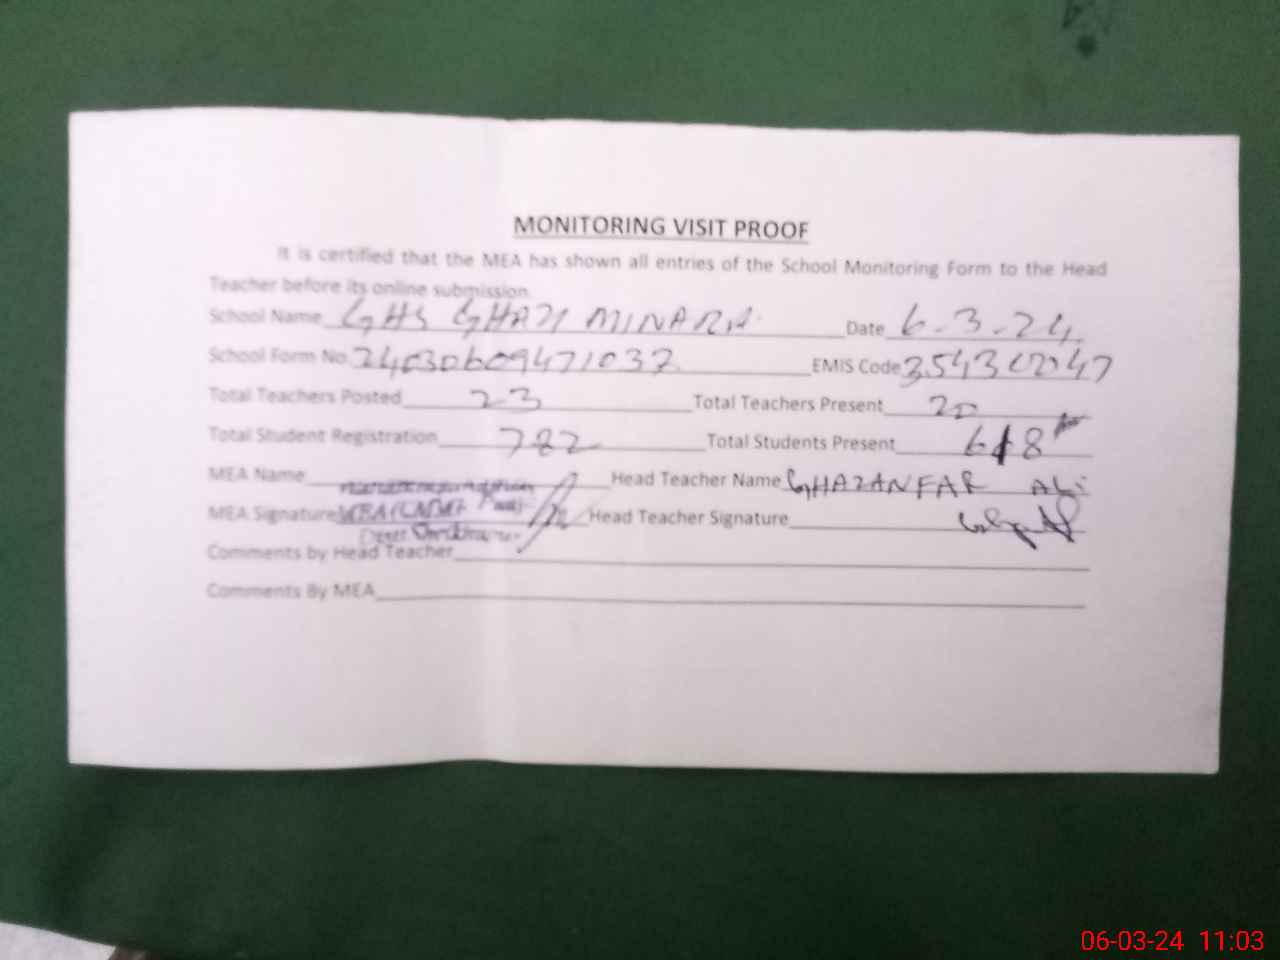 MONITORING VISIT PROOF
It is certified that the MEA has shown all entries of the School Monitoring Form to the Head
Teacher before its online submission.
School Name GHS GHAZI MINARA Date 6.3.24
School Form No. 24030609471037 EMIS Code
Total Teachers Posted 23 Total Teachers Present 20
Total Student Registration 782 Total Students Present 618
MEA Name Head Teacher Name GHAZANFAR ALi
MEA Signature Head Teacher Signature
Comments by Head Teacher
Comments By MEA
06-03-24 11:03